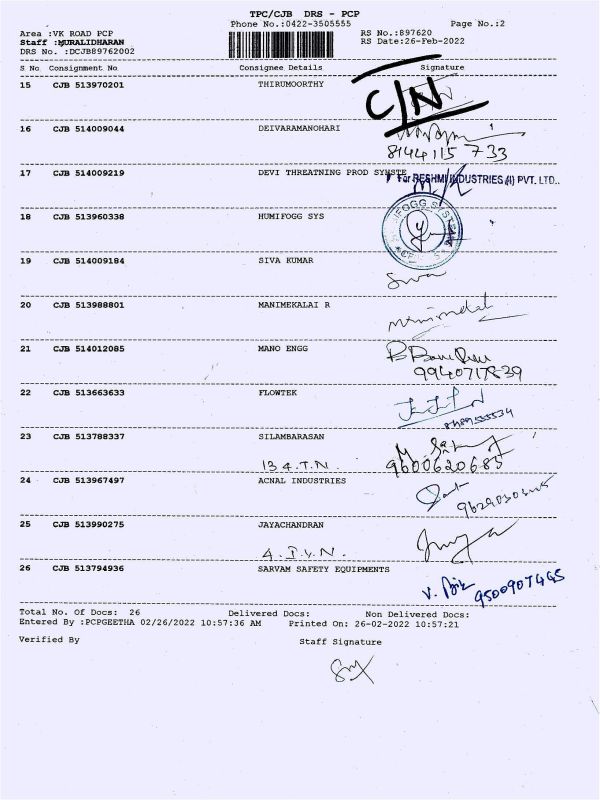 TPC/CJB DRS - PCP
Phone No.:0422-3505555 Page No.:2
Area :VK ROAD PCP RS No.:897620
Staff :MURALIDHARAN RS Date:26-Feb-2022
DRS No. :DCJB89762002
S No Consignment No Consignee Details Signature
15 CJB 513970201 THIRUMOORTHY
C/N
16 CJB 514009044 DEIVARAMANOHARI
8144115733
17 CJB 514009219 DEVI THREATNING PROD SYNSTE
For RESHMI INDUSTRIES (I) PVT. LTD.,
18 CJB 513960338 HUMIFOGG SYS
19 CJB 514009184 SIVA KUMAR
Siva
20 CJB 513988801 MANIMEKALAI R
21 CJB 514012085 MANO ENGG
9940717839
22 CJB 513663633 FLOWTEK
23 CJB 513788337 SILAMBARASAN
13 4.T.N. 9600620685
24 CJB 513967497 ACNAL INDUSTRIES
25 CJB 513990275 JAYACHANDRAN
26 CJB 513794936 SARVAM SAFETY EQUIPMENTS
9500907465
Total No. Of Docs: 26 Delivered Docs: Non Delivered Docs:
Entered By :PCPGEETHA 02/26/2022 10:57:36 AM Printed On: 26-02-2022 10:57:21
Verified By Staff Signature